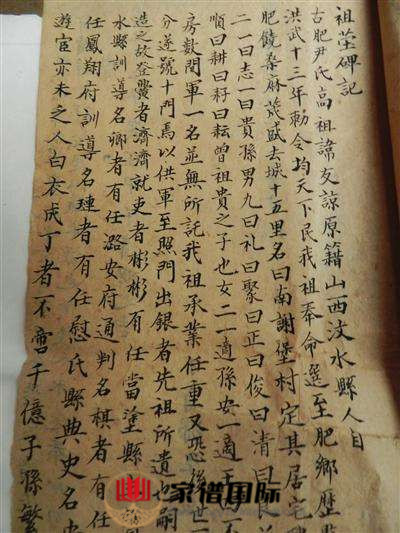 祖茔碑记
古肥尹氏高祖諱友諒原籍山西汶水縣人自
洪武十三年勅令均天下民我祖奉命選至肥鄉歷
肥饒桑麻茂盛去城十五里名曰南謝堡村定其居宅
二一曰志一曰貴孫男九曰礼曰聚曰正曰俊曰清曰良
順曰耕曰耔曰耘曾祖貴之子也女二一適孫安一適王
房数閆軍一名並無所託我祖承業任重又恐後世
分遂號十門焉以供軍至照門出銀者先祖所遺也嗣
造之故登黌者濟濟就吏者彬彬有任當塗縣
水縣訓導名卿者有任潞安府通判名棋者有任
任鳳翔府訓導名璉者有任慰氏縣典史名
遊宦亦未之人白衣成丁者不啻千億子孫繁
家谱国际